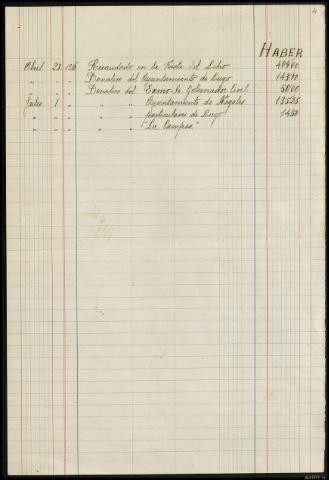 4
HABER
Abril 23 1936 Recaudado en la Fiesta del Libro
" " " Donativo del Ayuntamiento de Lugo
" " " Donativo del Exmo. Sr. Gobernador Civil 5000
Julio 1 " " " Ayuntamiento de Nogales 13525
" " " " particulares de Lugo
" " "La Campsa"